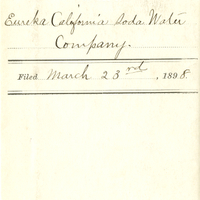 Eureka California Soda Water
Company.
Filed March 23rd, 1898.